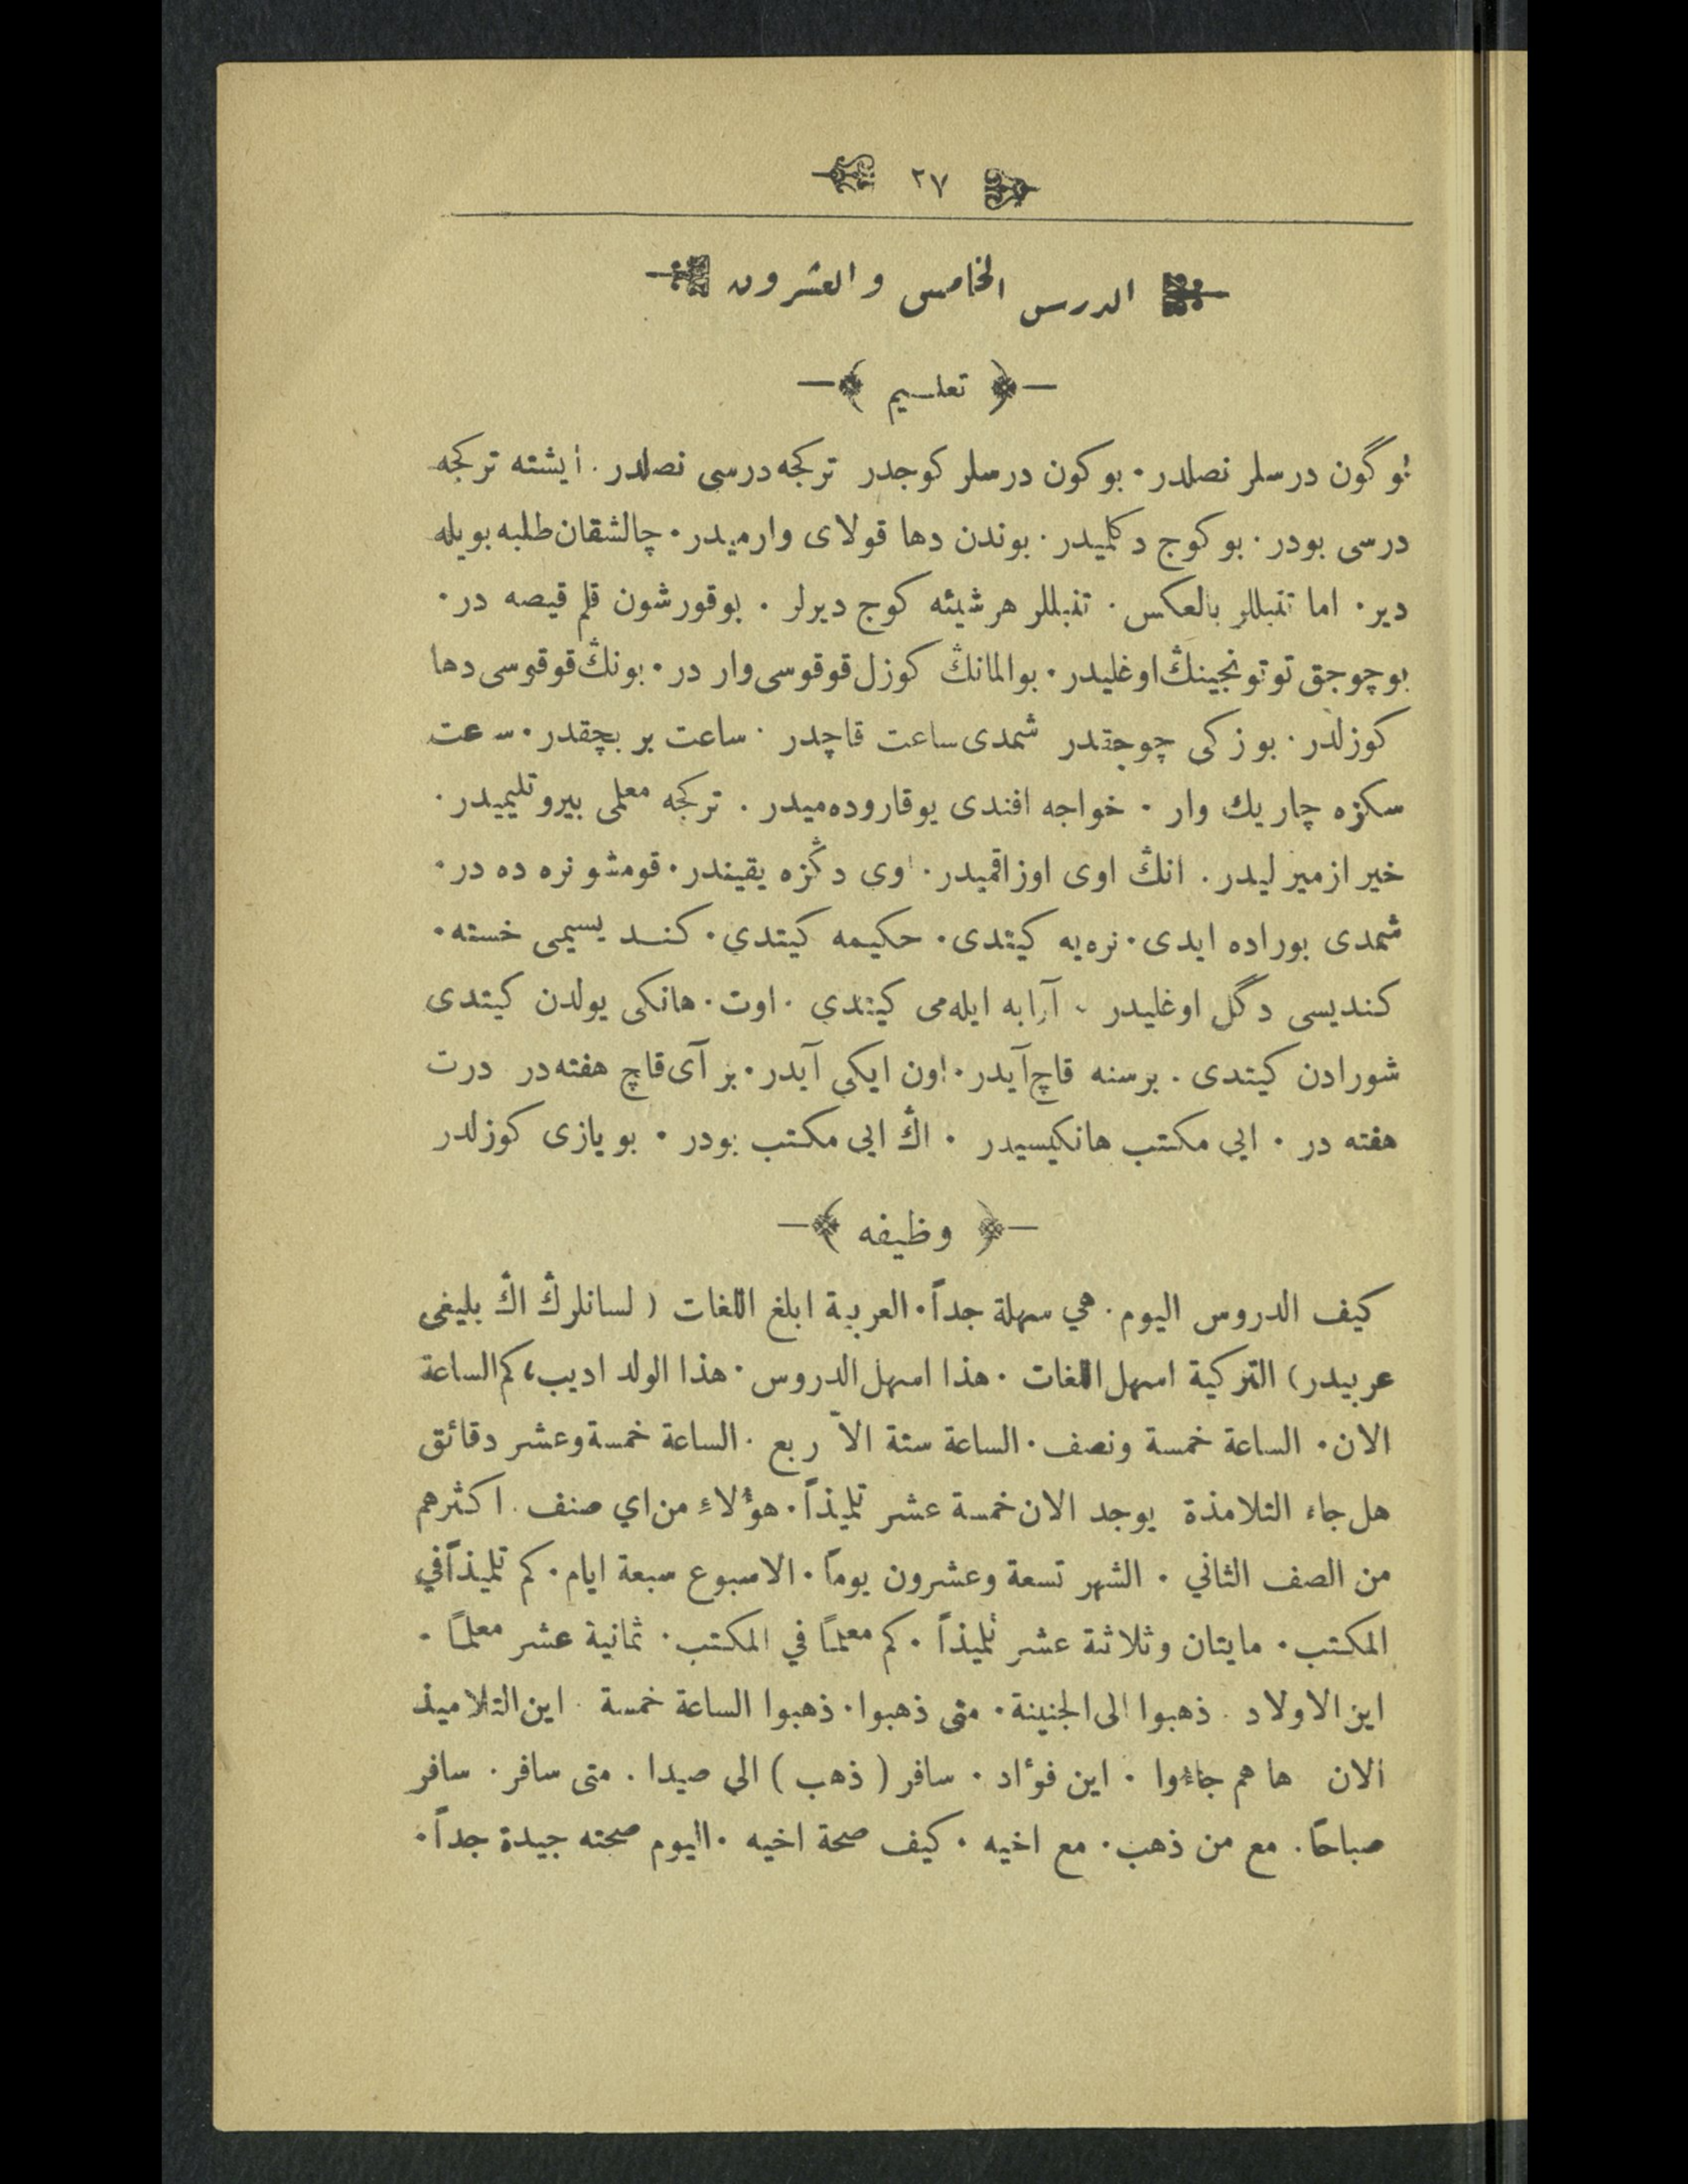 ٢٧
الدرس الخامس والعشرون
تعليم
بو گون درسلر نصلدر. بو كون درسلر كوجدر تركجه درسى نصلدر. ايشته تركجه
درسى بودر. بو كوج دكلميدر. بوندن دها قولاى وارميدر. چالشقان طلبه بويله
دير. اما تنبللر بالعكس. تنبللر هر شيئه كوج ديرلر. بو قورشون قلم قيصه در.
بو چوجق توتونجينڭ اوغليدر. بو المانڭ كوزل قوقوسى وار در. بونڭ قوقوسى دها
كوزلدر. بو زكى چوجقدر شمدى ساعت قاچدر. ساعت بر بچقدر. سعت
سكزه چاريك وار. خواجه افندى يوقاروده ميدر. تركجه معلمى بيروتليميدر.
خير ازمير ليدر. انڭ اوى اوزاقميدر. اوى دڭزه يقيندر. قومشو نره ده در.
شمدى بوراده ايدى. نره يه كيتدى. حكيمه كيتدي. كنديسيمى خسته.
كنديسى دگل اوغليدر. آرابه ايله مى كيتدي. اوت. هانكى يولدن كيتدى
شورادن كيتدى. برسنه قاچ آيدر. اون ايكى آيدر. بر آى قاچ هفته در درت
هفته در. ايى مكتب هانكيسيدر. اڭ ايى مكتب بودر. بو يازى كوزلدر
وظيفه
كيف الدروس اليوم. هي سهلة جداً. العربية ابلغ اللغات (لسانلرڭ اڭ بليغى
عربيدر) التركية اسهل اللغات. هذا اسهل الدروس. هذا الولد اديب، كم الساعة
الان. الساعة خمسة ونصف. الساعة ستة الاّ ربع. الساعة خمسة وعشر دقائق
هل جاء التلامذة يوجد الان خمسة عشر تلميذاً. هؤلاءِ من اي صنف. اكثرهم
من الصف الثاني. الشهر تسعة وعشرون يوماً. الاسبوع سبعة ايام. كم تلميذاً في
المكتب. مايتان وثلاثة عشر تلميذاً. كم معلمًا في المكتب. ثمانية عشر معلمًا.
اين الاولاد. ذهبوا الى الجنينة. متى ذهبوا. ذهبوا الساعة خمسة. اين التلاميذ
الان ها هم جاؤوا. اين فوأاد. سافر (ذهب) الى صيدا. متى سافر. سافر
صباحًا. مع من ذهب. مع اخيه. كيف صحة اخيه. اليوم صحته جيدة جداً.